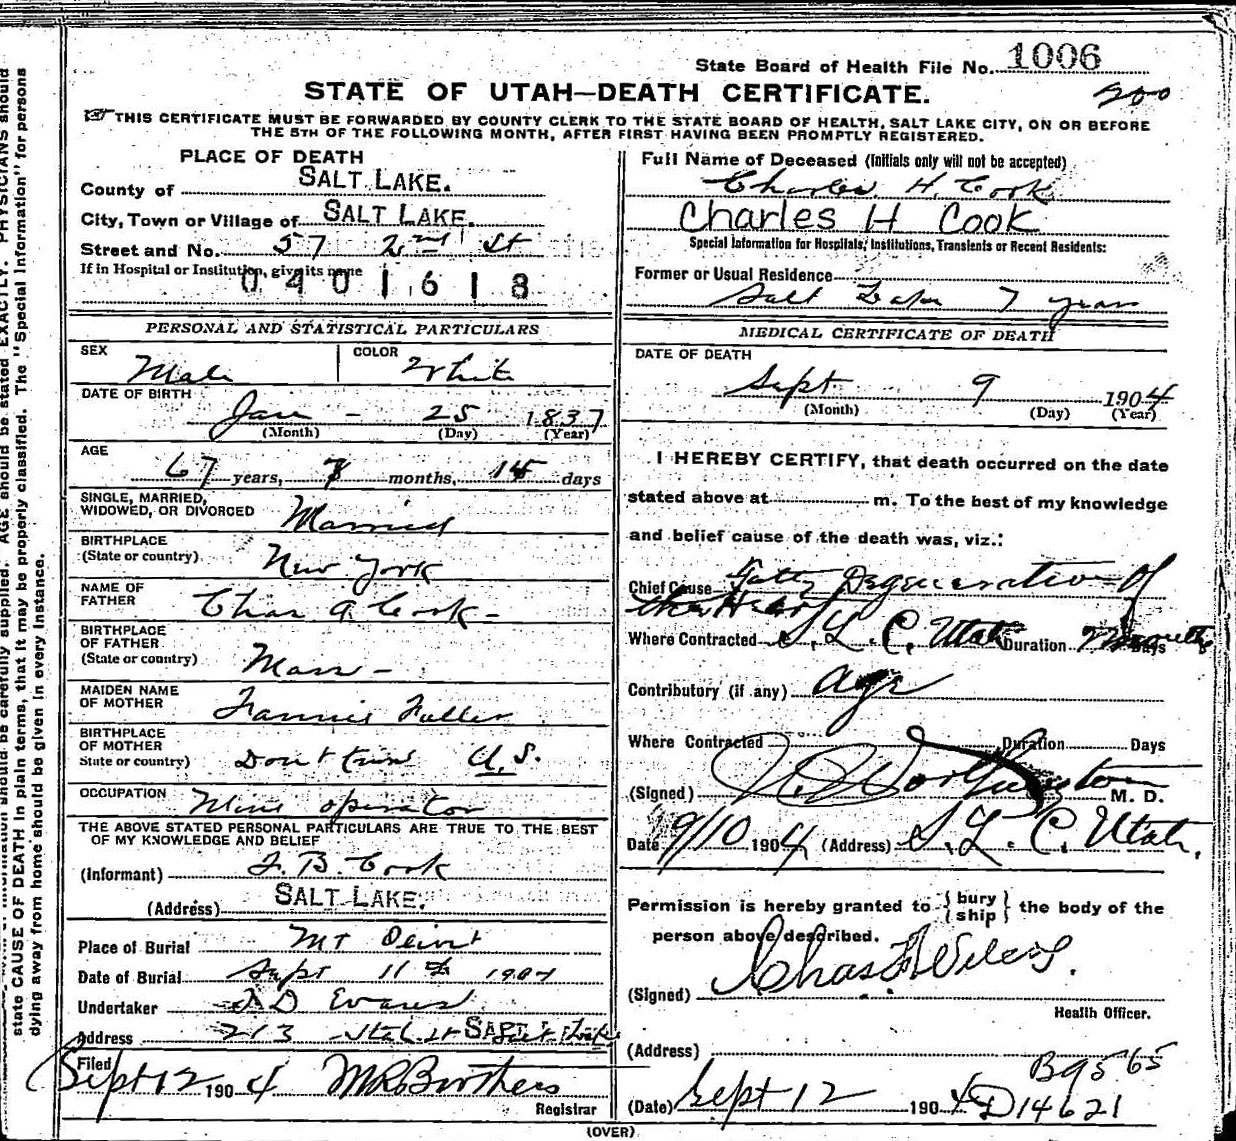 State Board of Health File No. 1006
STATE OF UTAH—DEATH CERTIFICATE.
200
THIS CERTIFICATE MUST BE FORWARDED BY COUNTY CLERK TO THE STATE BOARD OF HEALTH, SALT LAKE CITY, ON OR BEFORE
THE 5TH OF THE FOLLOWING MONTH, AFTER FIRST HAVING BEEN PROMPTLY REGISTERED.
PLACE OF DEATH
County of SALT LAKE.
City, Town or Village of SALT LAKE.
Street and No. 57 2nd St
If in Hospital or Institution, give its name
0401618
PERSONAL AND STATISTICAL PARTICULARS
SEX Male COLOR White
DATE OF BIRTH
Jan - 25 1837
(Month) (Day) (Year)
AGE
67 years, 7 months, 15 days
SINGLE, MARRIED,
WIDOWED, OR DIVORCED Married
BIRTHPLACE
(State or country) New York
NAME OF
FATHER Chas A Cook -
BIRTHPLACE
OF FATHER
(State or country) Mass -
MAIDEN NAME
OF MOTHER Fannie Fuller
BIRTHPLACE
OF MOTHER
State or country) Dont know U.S.
OCCUPATION Mine operator
THE ABOVE STATED PERSONAL PARTICULARS ARE TRUE TO THE BEST
OF MY KNOWLEDGE AND BELIEF
(Informant) F. B. Cook
(Address) SALT LAKE.
Place of Burial Mt Olivet
Date of Burial Sept 11th 1904
Undertaker D Evans
Address 213 State St Salt Lake
Filed
Sept 12 1904 Brothers
Registrar
Full Name of Deceased (Initials only will not be accepted)
Charles H. Cook
Charles H Cook
Special Information for Hospitals, Institutions, Transients or Recent Residents:
Former or Usual Residence
Salt Lake 7 years
MEDICAL CERTIFICATE OF DEATH
DATE OF DEATH
Sept 9 1904
(Month) (Day) (Year)
I HEREBY CERTIFY, that death occurred on the date
stated above at m. To the best of my knowledge
and belief cause of the death was, viz.:
Chief Cause Fatty Degeneration of
the Heart
Where Contracted S. L. C. Utah Duration Months Days
Contributory (if any) age
Where Contracted Duration Days
(Signed) M. D.
Date 9/10 1904 (Address) S. L. C. Utah.
Permission is hereby granted to { bury ship } the body of the
person above described.
(Signed) Chas
Health Officer.
(Address)
B9565
(Date) Sept 12 1904 D14621
(OVER)
information should be carefully supplied. AGE should be stated EXACTLY. PHYSICIANS should
state CAUSE OF DEATH in plain terms, that it may be properly classified. The "Special Information" for persons
dying away from home should be given in every instance.